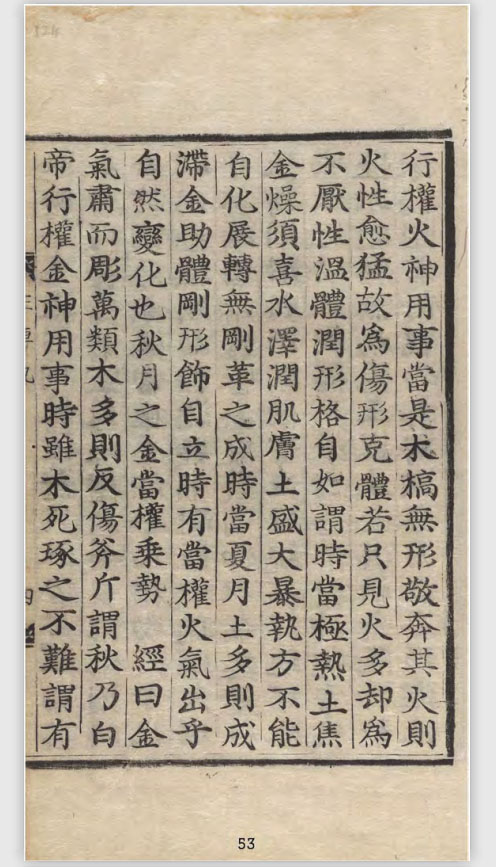 行權火神用事當是木槁無形敬奔其火則
火性愈猛故爲傷形克體若只見火多却爲
不厭性溫體潤形格自如謂時當極熱土焦
金燥須喜水澤潤肌膚土盛大暴執方不能
自化展轉無剛革之成時當夏月土多則成
滯金助體剛形飾自立時有當權火氣出乎
自然變化也秋月之金當權乘勢 經曰金
氣肅而彫萬類木多則反傷斧斤謂秋乃白
帝行權金神用事時雖木死琢之不難謂有
53